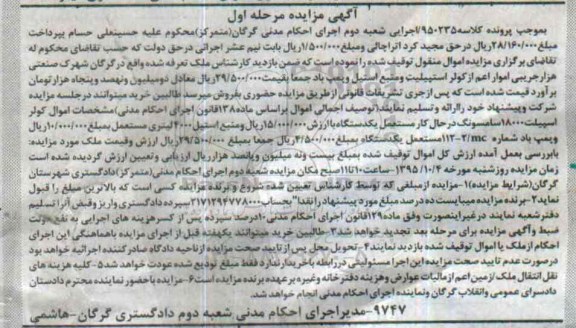 آگهی مزایده مرحله اول
بموجب پرونده کلاسه ۹۵۰۲۳۵/اجرایی شعبه دوم اجرای احکام مدنی گرگان(متمرکز)محکوم علیه حسینعلی حسام بپرداخت
مبلغ۲۸/۱۶۰/۰۰۰ریال در حق مجید کرد اترآچالی ومبلغ۱/۵۰۰/۰۰۰ریال بابت نیم عشر اجرائی درحق دولت که حسب تقاضای محکوم له
تقاضای برگزاری مزایده اموال منقول توقیف شده را نموده است که ضمن بازدید کارشناس ملک تعرفه شده واقع در گرگان شهرک صنعتی
هزارجریبی اموار اعم از کولر اسپیلیت ومنبع استیل وپمپ باد جمعا بقیمت۲۹/۵۰۰/۰۰۰ریال معادل دومیلیون ونهصد وپنجاه هزارتومان
برآورد قیمت شده است که پس ازجری تشریفات قانونی ازطریق مزایده حضوری بفروش میرسد طالبین خرید میتوانند درجلسه مزایده
شرکت وپیشنهاد خود راارائه وتسلیم نمایند(توصیف اجمالی اموال براساس ماده۱۳۸قانون اجرای احکام مدنی)مشخصات اموال کولر
اسپیلت۱۸۰۰۰سامسونگ درحال کار مستعمل یکدستگاه باارزش ۱۵/۰۰۰/۰۰۰ریال ومنبع استیل۴۰۰۰لیتری مستعمل بمبلغ۱۰/۰۰۰/۰۰۰ریال
وپمپ باد شماره ۱۱۳-۲/mc مستعمل یکدستگاه بمبلغ۴/۵۰۰/۰۰۰ریال جمعا بمبلغ ۲۹/۵۰۰/۰۰۰ریال ارزش وقیمت ملک مورد مزایده:
بابررسی بعمل آمده ارزش کل اموال توقیف شده بمبلغ بیست ونه میلیون وپانصد هزارریال ارزیابی وتعیین ارزش گردیده شده است
زمان مزایده روزشنبه مورخه ۱۳۹۵/۱۰/۴ -ساعت۱۰تا۱۱صبح مکان مزایده شعبه دوم اجرای احکام مدنی(متمرکز)دادگستری شهرستان
گرگان(شرایط مزایده)۱-مزایده ازمبلغی که توسط کارشناس تعیین شده شروع وبرنده مزایده کسی است که بالاترین مبلغ را قبول
نماید۲-برنده مزایده میبایست ده درصد مبلغ مورد پیشنهاد رانقدا"بحساب۲۱۷۱۲۹۴۷۷۸۰۰۰سپرده دادگستری واریز وقبض آنرا تسلیم
دفترشعبه نمایند درغیراینصورت وفق ماده۱۲۹قانون اجرای احکام مدنی۱۰درصد سپرده پس از کسرهزینه های اجرایی به نفع دولت
ضبط وآگهی مزایده برای مرحله بعد تجدید خواهد شد۳-طالبین خرید میتوانند یکهفته قبل از اجرای مزایده باهماهنگی این اجرای
احکام ازملک یا اموال توقیف شده بازدید نمایند۴-تحویل محل پس از تایید صحت مزایده ازناحیه دادگاه صادرکننده اجرائیه خواهد بود
درصورت عدم تایید صحت مزایده این اجرا مسئولیتی دررابطه باخریدارندارد فقط مبلغ تودیع شده عودت خواهد شد۵-کلیه هزینه های
نقل انتقال ملک اززمین اعم ازمالیات عوارض وهزینه دفترخانه وغیره برعهده برنده مزایده است۶-مزایده باحضورنماینده محترم دادستان
دادسرای عمومی وانقلاب گرگان ونماینده اجرای احکام مدنی انجام خواهد شد.
۹۷۴۷-مدیراجرای احکام مدنی شعبه دوم دادگستری گرگان-هاشمی